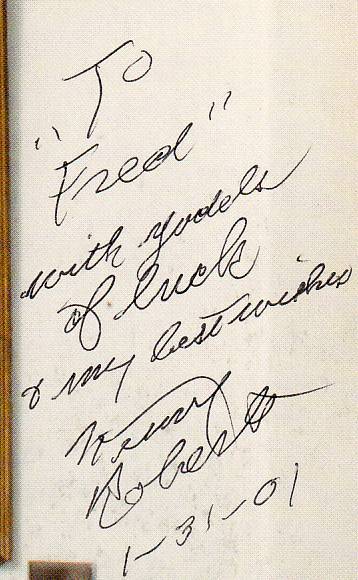 To
"Fred"
with yodels
of luck
& my best wishes
Kenny
Roberts
1-31-01